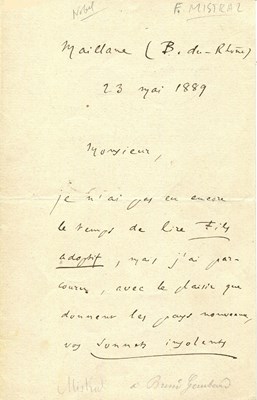 Nobel
F. MISTRAL
Maillane (B. du-Rhône)
23 mai 1889
Monsieur,
je n'ai pas eu encore
le temps de lire Fils
adoptif, mais j'ai par-
couru, avec le plaisir que
donnent les pays nouveaux,
vos Sonnets insolents
Mistral
a Bruno